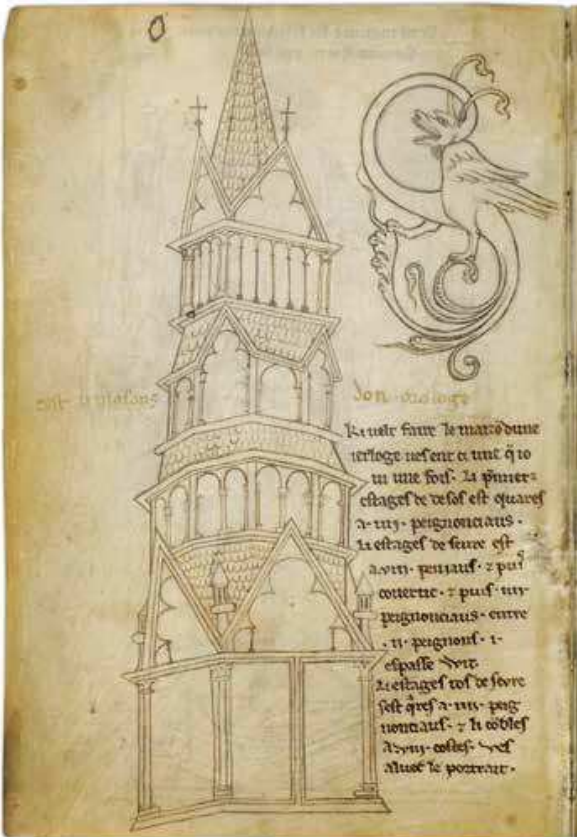 cest li masons don orologe
Ki velt faire le maizo dune
ierloge ves ent ci une q̄ io
vi une fois. Li p̄miers
estages de desos est quares
a .iiij. peignonciaus.
Li estages deseure est
a .viij. peniaus . ⁊ puis
covertic . ⁊ puis .iiij.
peignonciaus . entre
.ij. peignons . i .
espasse wit
Li estages tos deseure
sest q̄res a .iiij. peig
nonciaus . ⁊ li cōbles
a .viij. costes . ves
aluec le portrait .